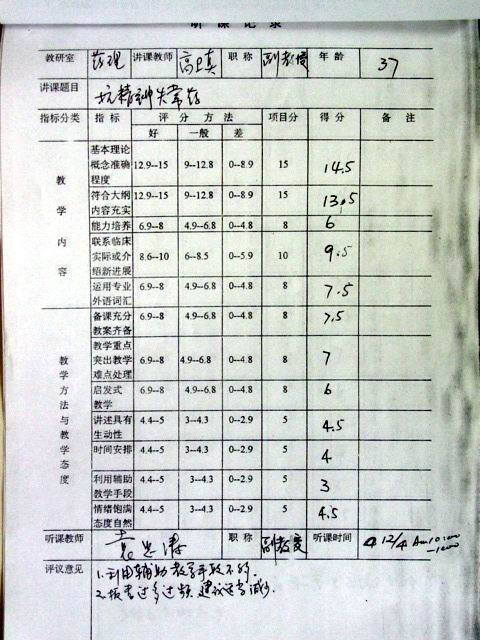 听课记录
教研室 药理 讲课教师 高上真 职称 副教授 年龄 37
讲课题目 抗精神失常药
指标分类 指标 评分方法 项目分 得分 备注
好 一般 差
教学内容
基本理论概念准确程度 12.9--15 9--12.8 0--8.9 15 14.5
符合大纲内容充实 12.9--15 9--12.8 0--8.9 15 13.5
能力培养 6.9--8 4.9--6.8 0--4.8 8 6
联系临床实际或介绍新进展 8.6--10 6--8.5 0--5.9 10 9.5
运用专业外语词汇 6.9--8 4.9--6.8 0--4.8 8 7.5
教学方法与教学态度
备课充分教案齐备 6.9--8 4.9--6.8 0--4.8 8 7.5
教学重点突出教学难点处理 6.9--8 4.9--6.8 0--4.8 8 7
启发式教学 6.9--8 4.9--6.8 0--4.8 8 6
讲述具有生动性 4.4--5 3--4.3 0--2.9 5 4.5
时间安排 4.4--5 3--4.3 0--2.9 5 4
利用辅助教学手段 4.4--5 3--4.3 0--2.9 5 3
情绪饱满态度自然 4.4--5 3--4.3 0--2.9 5 4.5
听课教师 职称 副教授 听课时间 12/4
评议意见 1.利用辅助教学手段不够.
2.板书过多过频 建议适当减少.